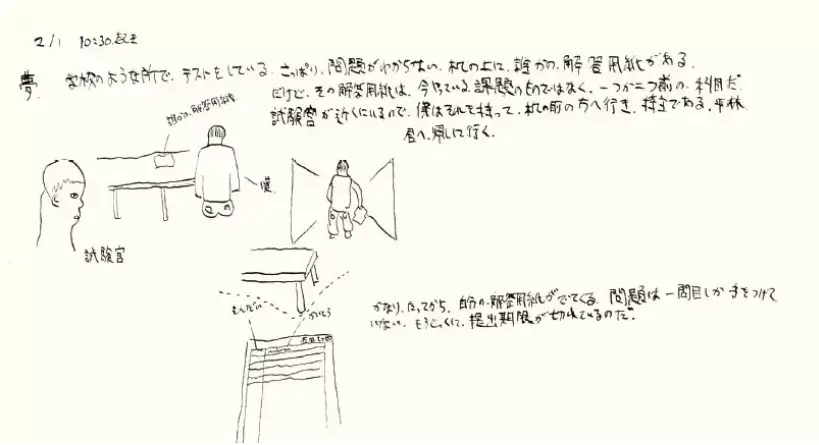 2/1 10:30.起き
夢. 学校のような所で、テストをしている. さっぱり、問題がわからない. 机の上に、誰かの、解答用紙がある.
だけど、その解答用紙は、今やっている、課題のものではなく、一つか二つ前の、科目だ.
試験官が近くにいるので、僕はそれを持って、机の前の方へ行き、持主である、平林
君へ、返しに行く.
誰かの、解答用紙
僕
試験官
かなり、たってから、自分の、解答用紙がでてくる. 問題は一問目しか手をつけて
いない. もうとっくに、提出期限が切れているのだ.
もんだい
かいとう